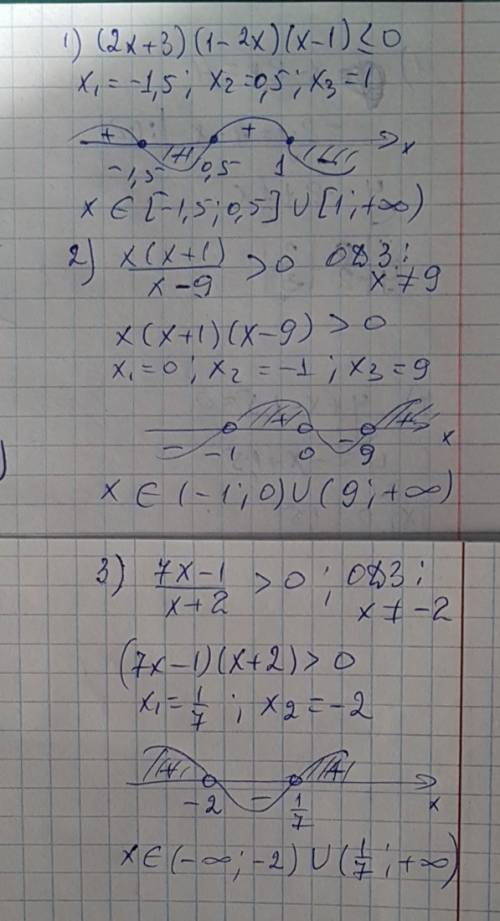 1) (2x+3)(1-2x)(x-1)≤0
x₁=-1,5; x₂=0,5; x₃=1
+ + x
-1,5 0,5 1
x ∈ [-1,5; 0,5] ∪ [1; +∞)
2) x(x+1)/x-9 > 0 ОДЗ:
x ≠ 9
x(x+1)(x-9) > 0
x₁=0; x₂=-1; x₃=9
- + - + x
-1 0 9
x ∈ (-1; 0) ∪ (9; +∞)
3) 7x-1/x+2 > 0; ОДЗ:
x ≠ -2
(7x-1)(x+2) > 0
x₁=1/7; x₂=-2
+ - + x
-2 1/7
x ∈ (-∞; -2) ∪ (1/7; +∞)